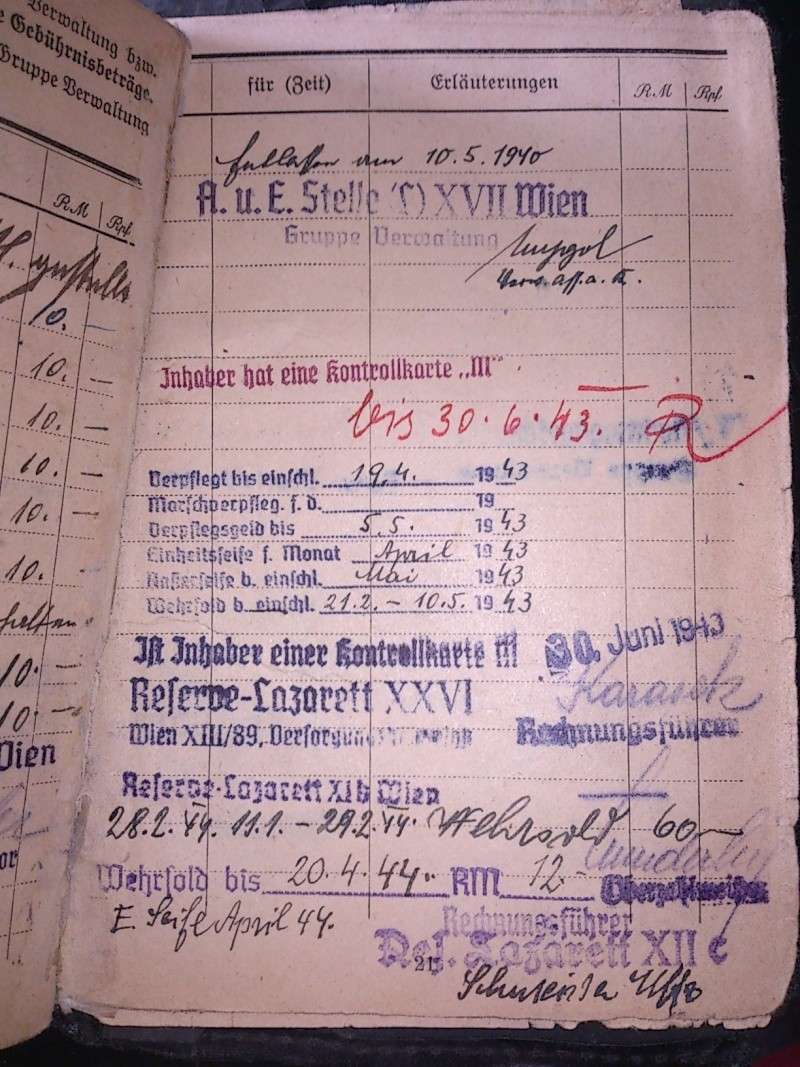 Verwaltung bzw.
e Gebührnisbeträge.
Gruppe Verwaltung
RM Rpf.
10. —
10. —
10. —
10. —
10. —
10.
10. —
10 —
Wien
or
für (Zeit) Erläuterungen RM Rpf.
Entlassen am 10.5.1940
A. u. E. Stelle (L) XVII Wien
Gruppe Verwaltung
Inhaber hat eine Kontrollkarte „III“
bis 30.6.43. R
Verpflegt bis einschl. 19.4. 1943
Marschverpfleg. f. d. 19
Verpflegsgeld bis 5.5. 1943
Einheitsseife f. Monat April 1943
Rasierseife b. einschl. Mai 1943
Wehrsold b. einschl. 21.2. – 10.5. 1943
Ist Inhaber einer Kontrollkarte III 30. Juni 1943
Reserve-Lazarett XXVI
Wien XIII/89,
Rechnungsführer
Reserve-Lazarett XIb Wien
28.2.44. 11.1. – 29.2.44. Wehrsold 60,—
Wehrsold bis 20.4.44. RM 12.-
Oberzahlmeister
E. Seife April 44.
Rechnungsführer
Res. Lazarett XII c
21
Uffz